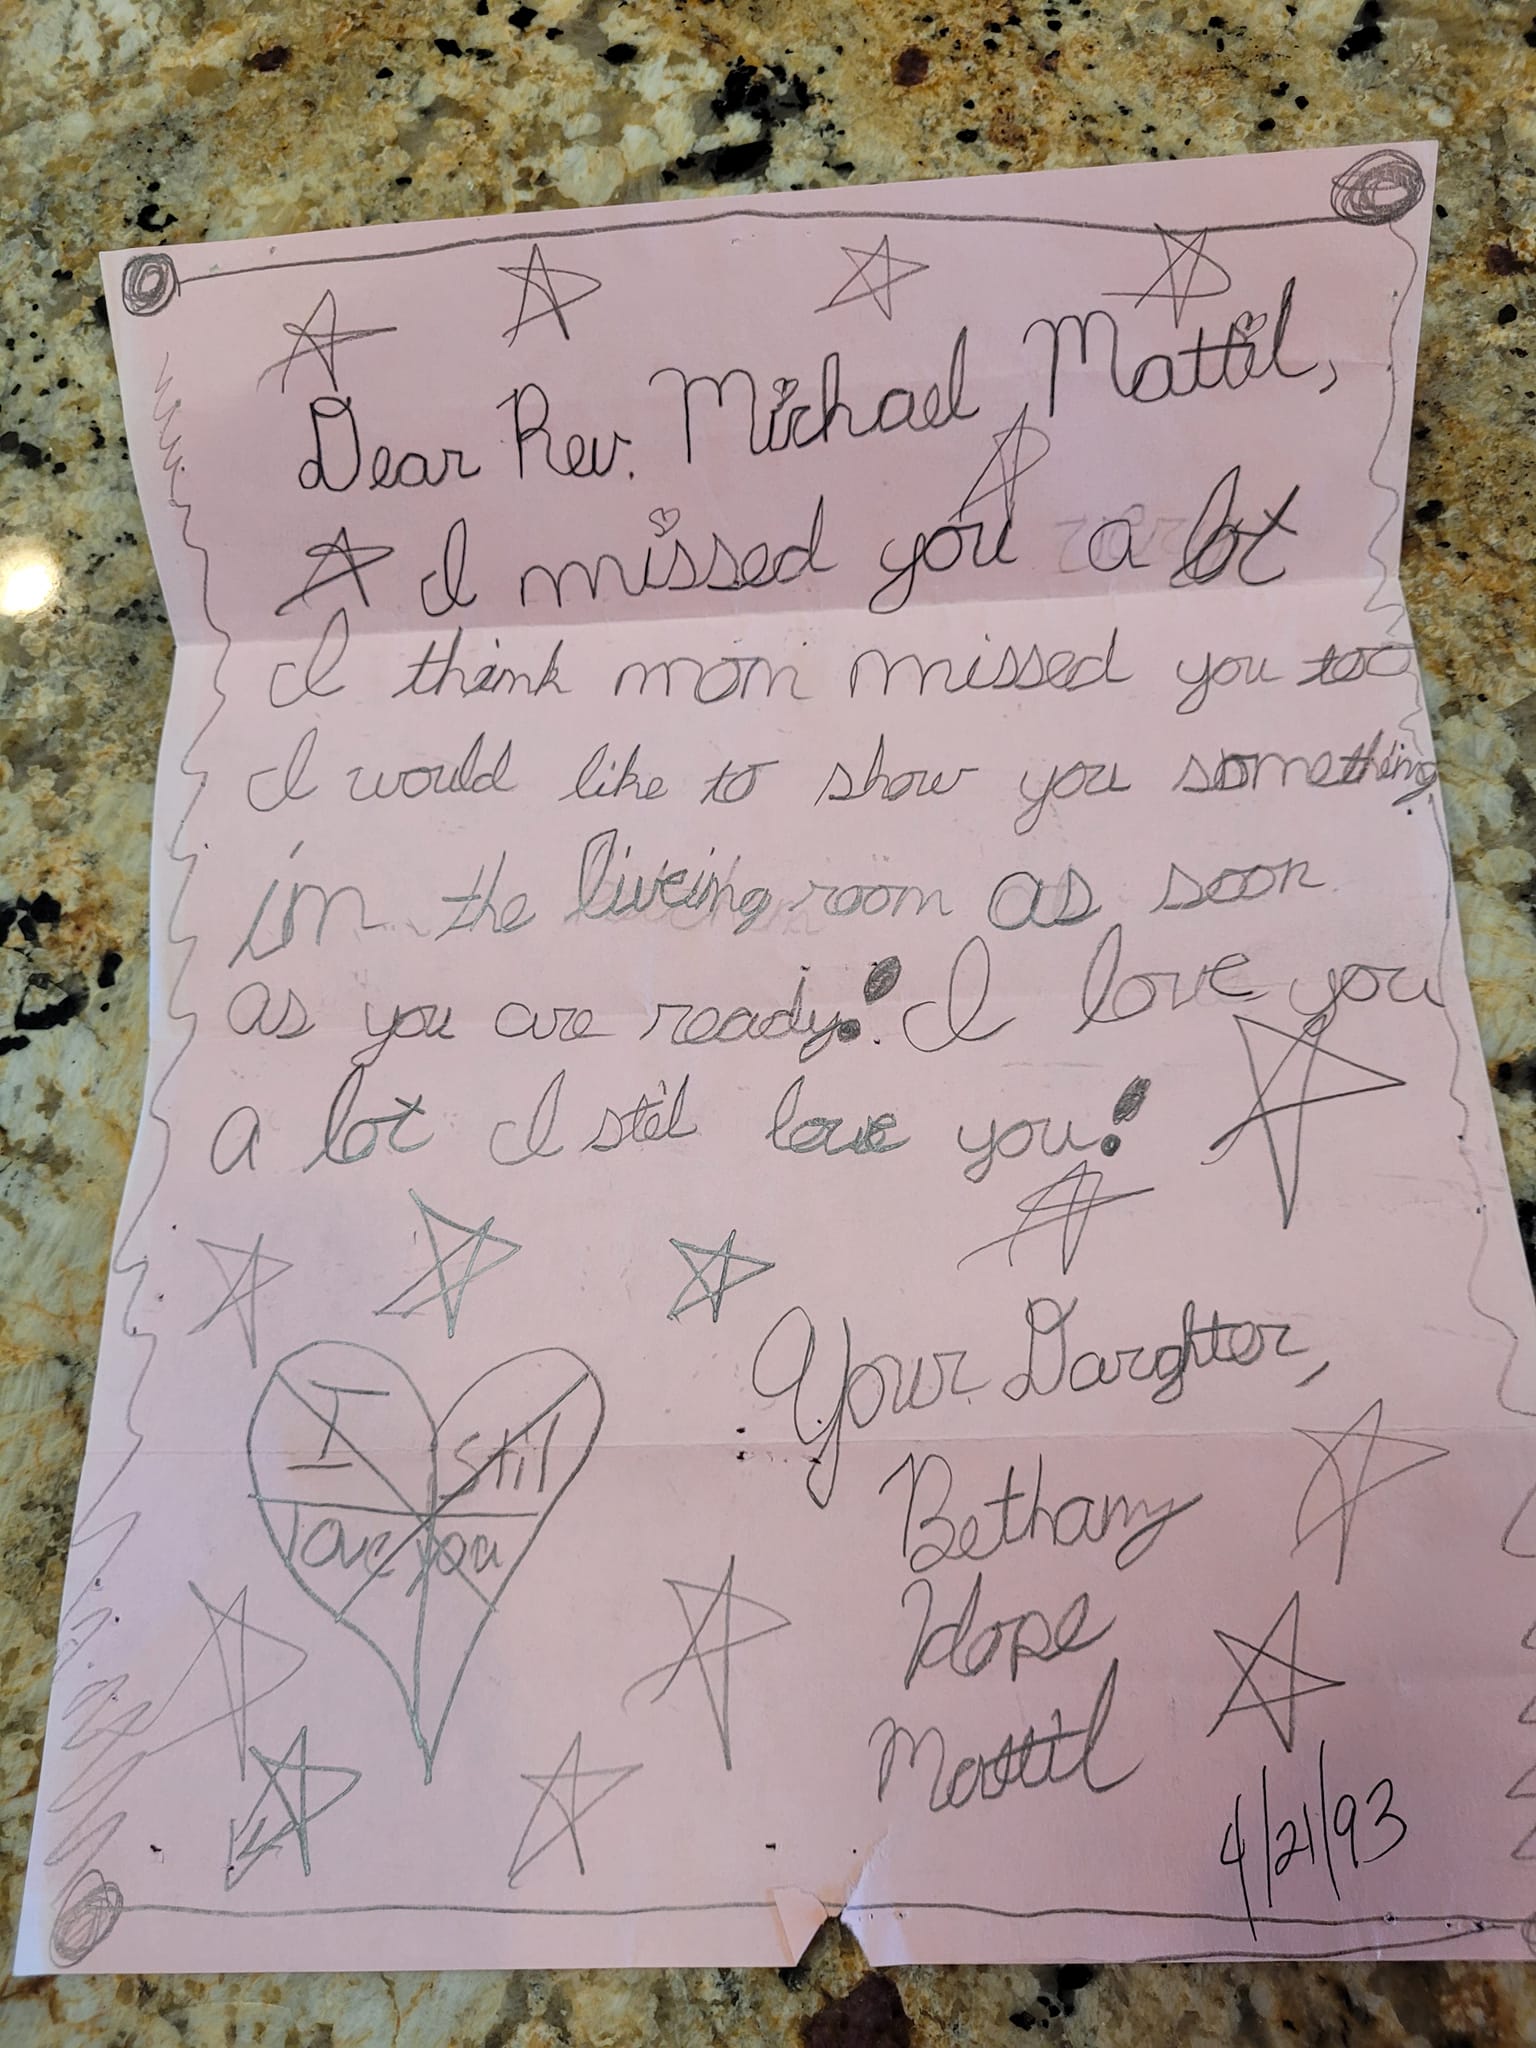 Dear Rev. Michael Mattil,
I missed you a lot
I think mom missed you too
I would like to show you something
in the liveing room as soon
as you are ready! I love you
a lot I stil love you!
Your Darghter,
Bethany
Hope
Mattil
I stil
love you
4/21/93